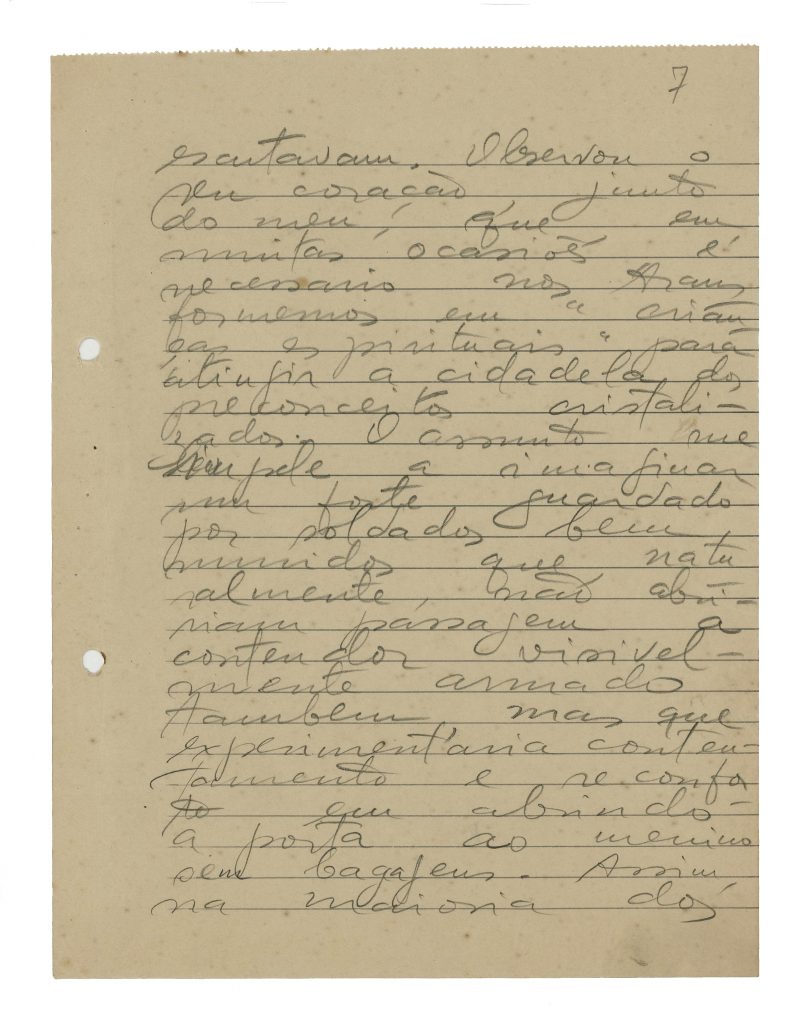 7
escutavam. Observou o
seu coração junto
do meu, que em
muitas ocasiões é
necessario nos trans
formemos em "crian
ças espirituais" para
atingir a cidadela dos
preconceitos cristali-
zados. O assunto me
impele a imaginar
um forte guardado
por soldados bem
munidos que natu
ralmente, não abri-
riam passagem a
contendor visivel-
mente armado
tambem, mas que
experimentaria conten-
tamento e reconfor
to em abrindo-
a porta ao menino
sem bagagens. Assim,
na maioria dos